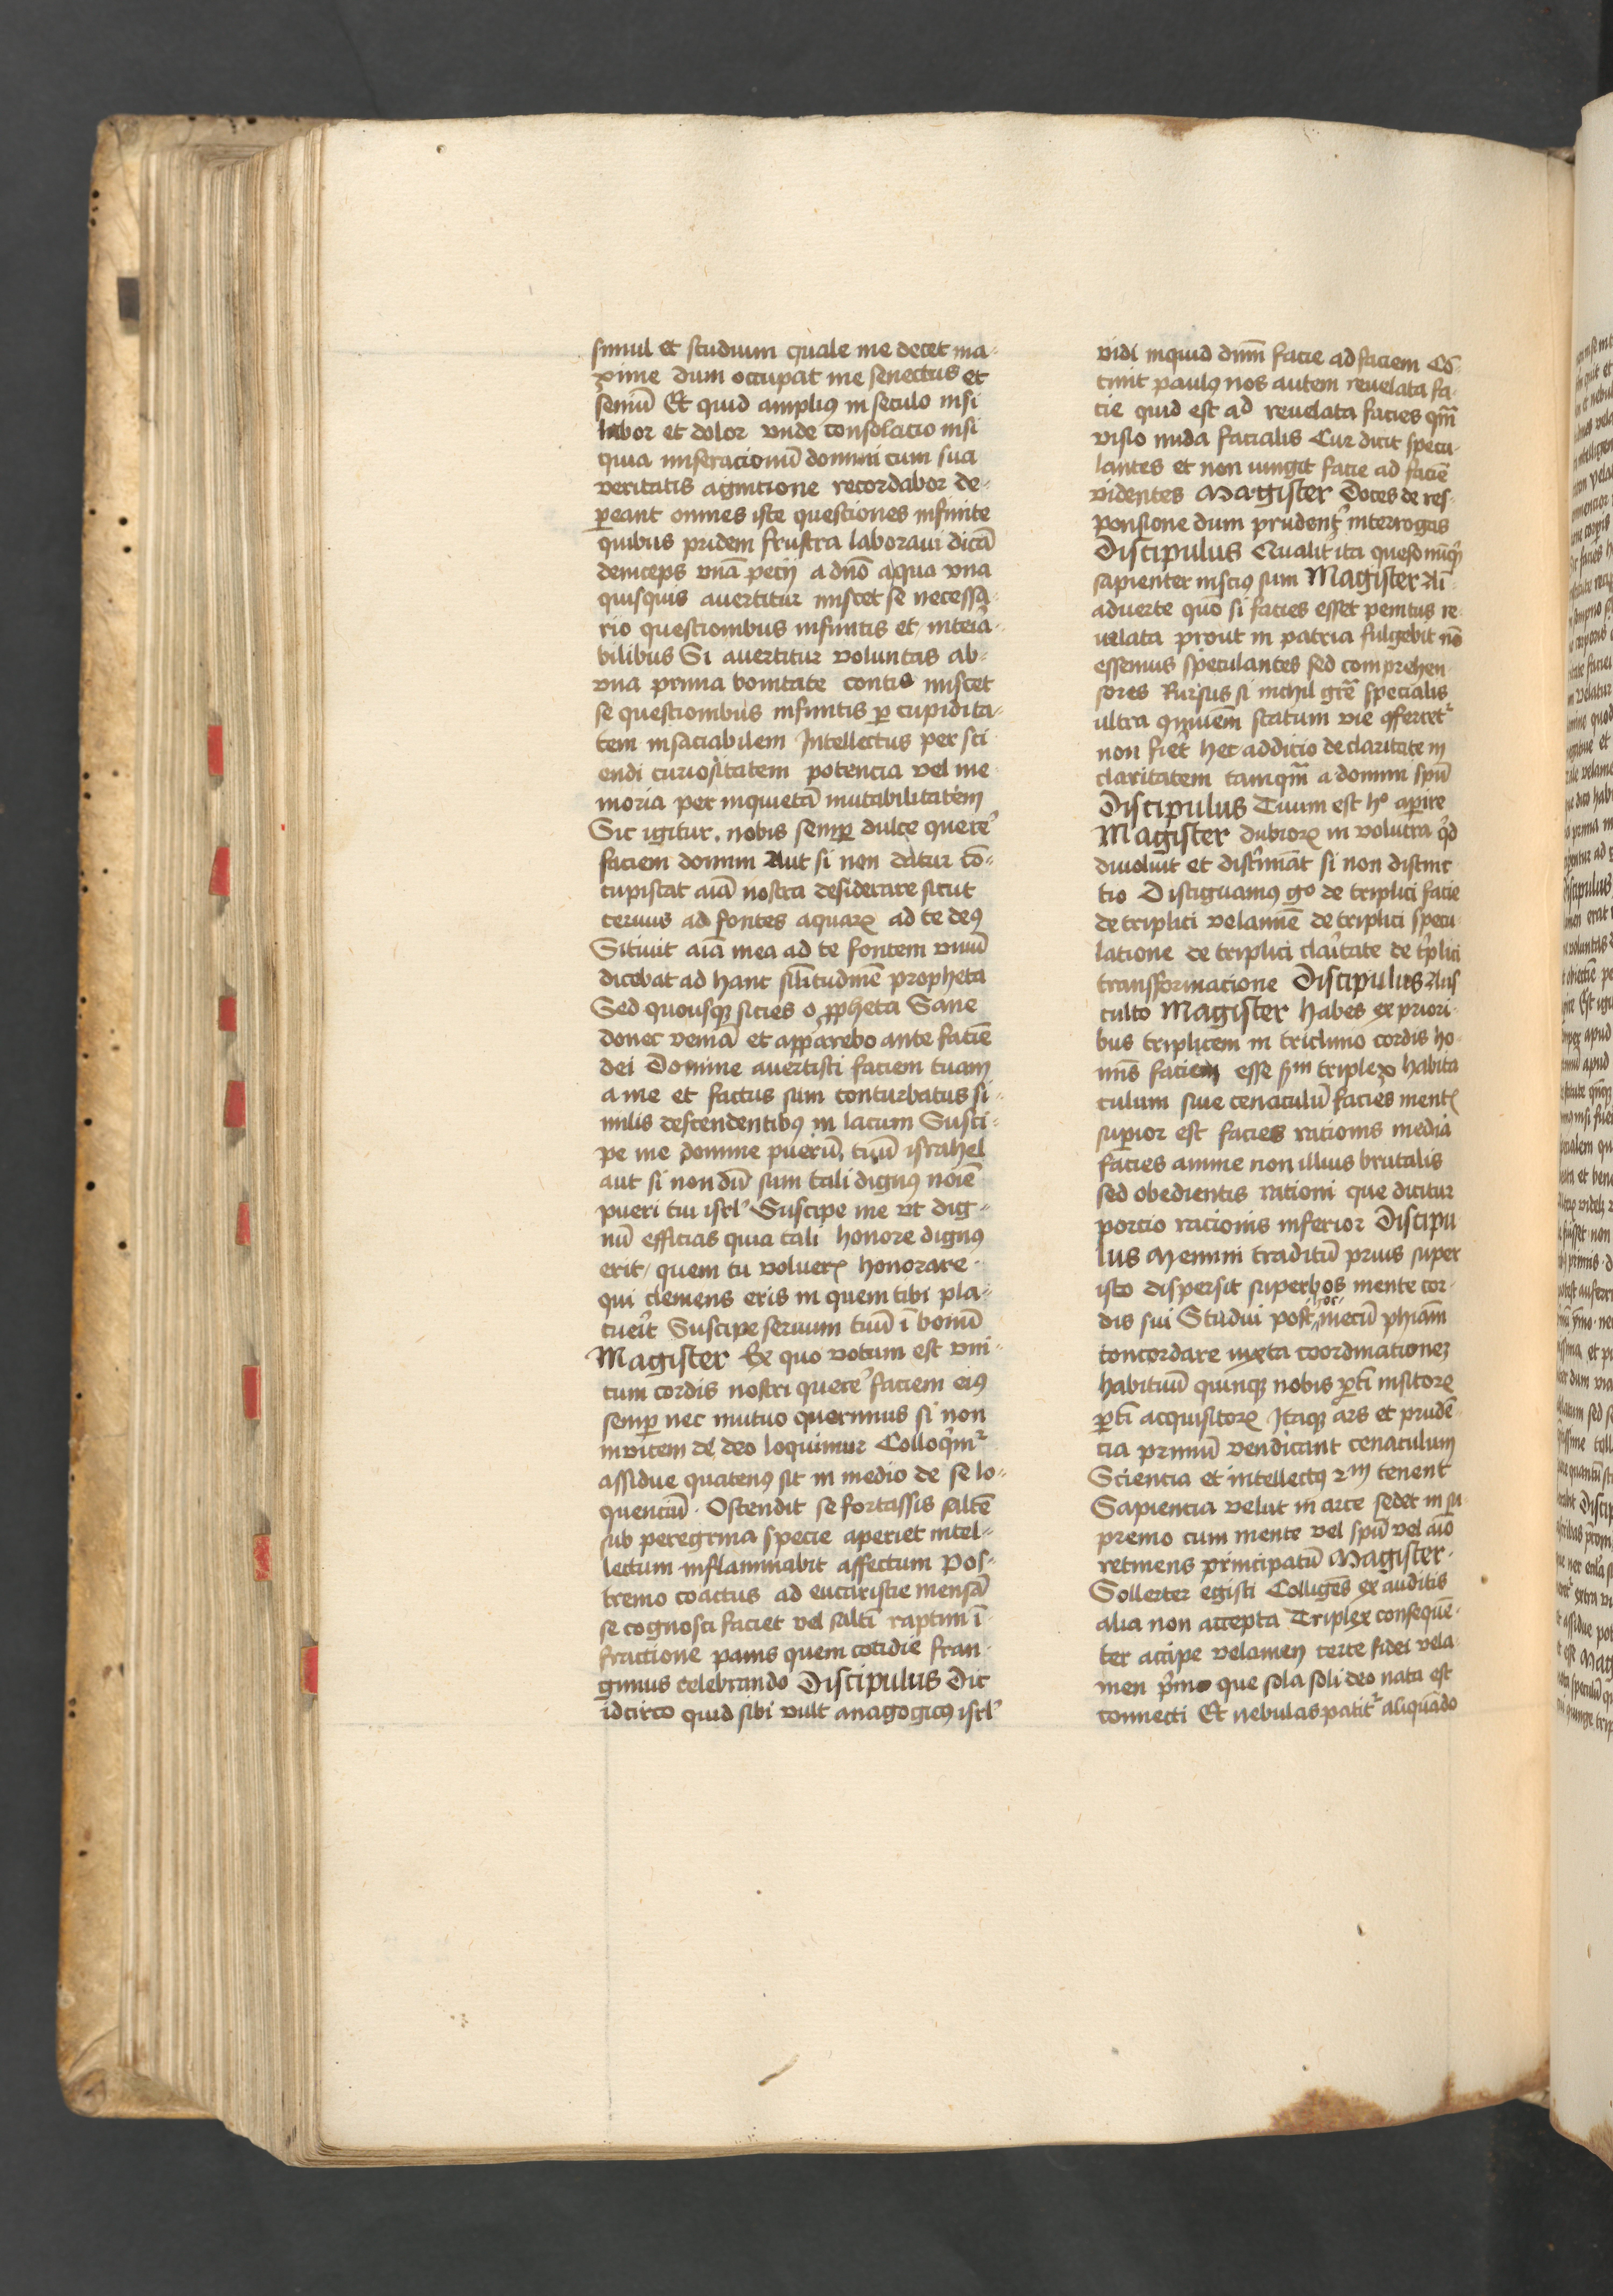 simul et studium quale me decet ma-
xime dum occupat me senectus et
seniū Et quid amplius in seculo nisi
labor et dolor vnde consolatio nisi
quia miseracionū domini cum sua
veritatis agnitione recordabor de-
peant omnes iste questiones infinite
quibus pridem frustra laboraui dicā
deinceps vnā pecij a dnō aqua vna
quisquis auertitur miscet se necessa-
rio questionibus infinitis et interia-
bilibus Si auertitur voluntas ab-
vna prima bonitate miscet
se questionibus infinitis ꝑ cupidita-
tem insaciabilem Intellectus per sci
endi curiositatem potencia vel me
moria per inquietā mutabilitatem
Sic igitur nobis semꝑ dulce querer̕
faciem domini Aut si non datur cō-
cupiscat aīā nostra desiderare sicut
ceruus ad fontes aquaꝝ ad te deꝰ
Sitiuit aīa mea ad te fontem viuū
dicebat ad hanc silitudinē propheta
Sed quousqꝫ sities o ꝓpheta Sane
donec veniā et apparebo ante faciē
dei Domine auertisti faciem tuam
a me et factus sum conturbatus si-
milis descendentibꝰ in lacum Susci-
pe me domine puerū tuū israhel
aut si non dū sum tali dignꝰ noīe
pueri tui isrl̕ Suscipe me vt dig-
nū efficias quia tali honore dignꝰ
erit quem tu voluerꝭ honorare
qui clemens eris in quem tibi pla-
cuer̕it Suscipe seruum tuū ī bonū
Magister Ex quo votum est vni-
cum cordis nostri querer̕ faciem eiꝰ
semꝑ nec mutuo querimus si non
inuicem de deo loquimur Colloqͥmr̕
assidue quatenꝰ sit in medio de se lo-
quenciū Ostendit se fortassis saltē
sub peregrina specie aperiet intel-
lectum inflammabit affectum Pos-
tremo coactus ad eucaristie mensā
se cognosci faciet vel saltī raptim ī
fractione panis quem cotidie fran-
gimus celebrando Discipulus Dic
idcirco quid sibi vult anagogicꝰ isrl̕
vidi inquid dnm̄ facie ad faciem Cō-
cinit paulꝰ nos autem reuelata fa-
cie quid est ad reuelata facies qm̄
visio nuda facialis Cur dicit specu-
lantes et non iungit facie ad faciē
videntes Magister Doces de res-
ponsione dum prudentr̕ interrogas
Discipulus Qualit̕ ita queso
sapienter inscius sum Magister
aduerte quō si facies esset penitus re-
uelata prout in patria fulgebit nō
essemus speculantes sed comprehen
sores Rursus si nichil grē specialis
ultra ꝯmuēm statum vie ꝯferretr̕
non fiet hec addicio de claritate in
claritatem tamqm̄ a domini spū
Discipulus Tuum est hº aperire
Magister dubioꝝ in volucra qͥd
diuoluit et discͥminat si non distinc
tio Distiguamus gº de triplici facie
de triplici velamīe de triplici specu-
latione de triplici claritate de tͥplici
transformacione Discipulus Aus
culto Magister Habes ex priori-
bus triplicem in triclinio cordis ho-
mīs faciem esse ẜm triplex habita
culum siue cenaculū facies mentꝭ
suꝑior est facies racionis media
facies anime non illius brutalis
sed obedientis rationi que dicitur
porcio racionis inferior Discipu
lus Memini traditū prius super
isto dispersit superbos mente cor-
dis sui Studui post hoc mecū phiam̄
concordare iuxta coordinationeꝫ
habituū quinqꝫ nobis ꝑtī insitoꝝ
ꝑtī acquisitoꝝ Itaqꝫ ars et prudē-
cia primū vendicant cenaculum
Sciencia et intellectꝰ 2m tenent
Sapiencia velut in arce sedet in su-
premo cum mente vel spū vel aīo
retinens principatū Magister
Sollerter egisti Colligēs ex auditis
alia non accepta Triplex consequē-
ter accipe velamen certe fidei vela-
men pͥmo que sola soli deo nata est
connecti Et nebulas patitr̕ aliquādo